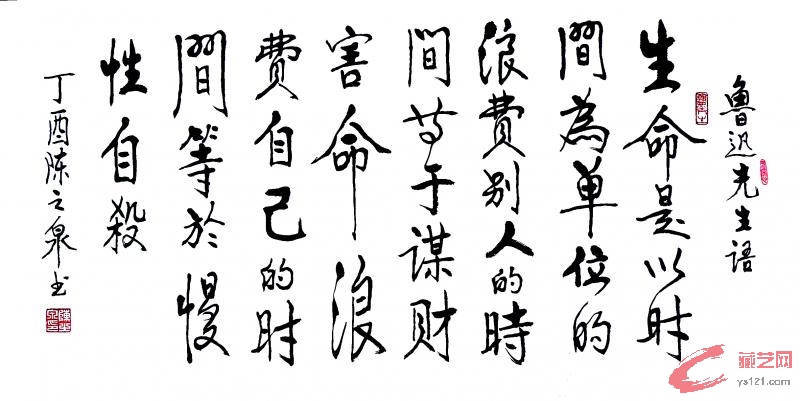 魯迅先生语
生命是以时
間為单位的
浪費别人的時
间等于谋财
害命浪
費自己的时
間等於慢
性自殺
丁酉陈之泉书
藏艺网
ys121.com